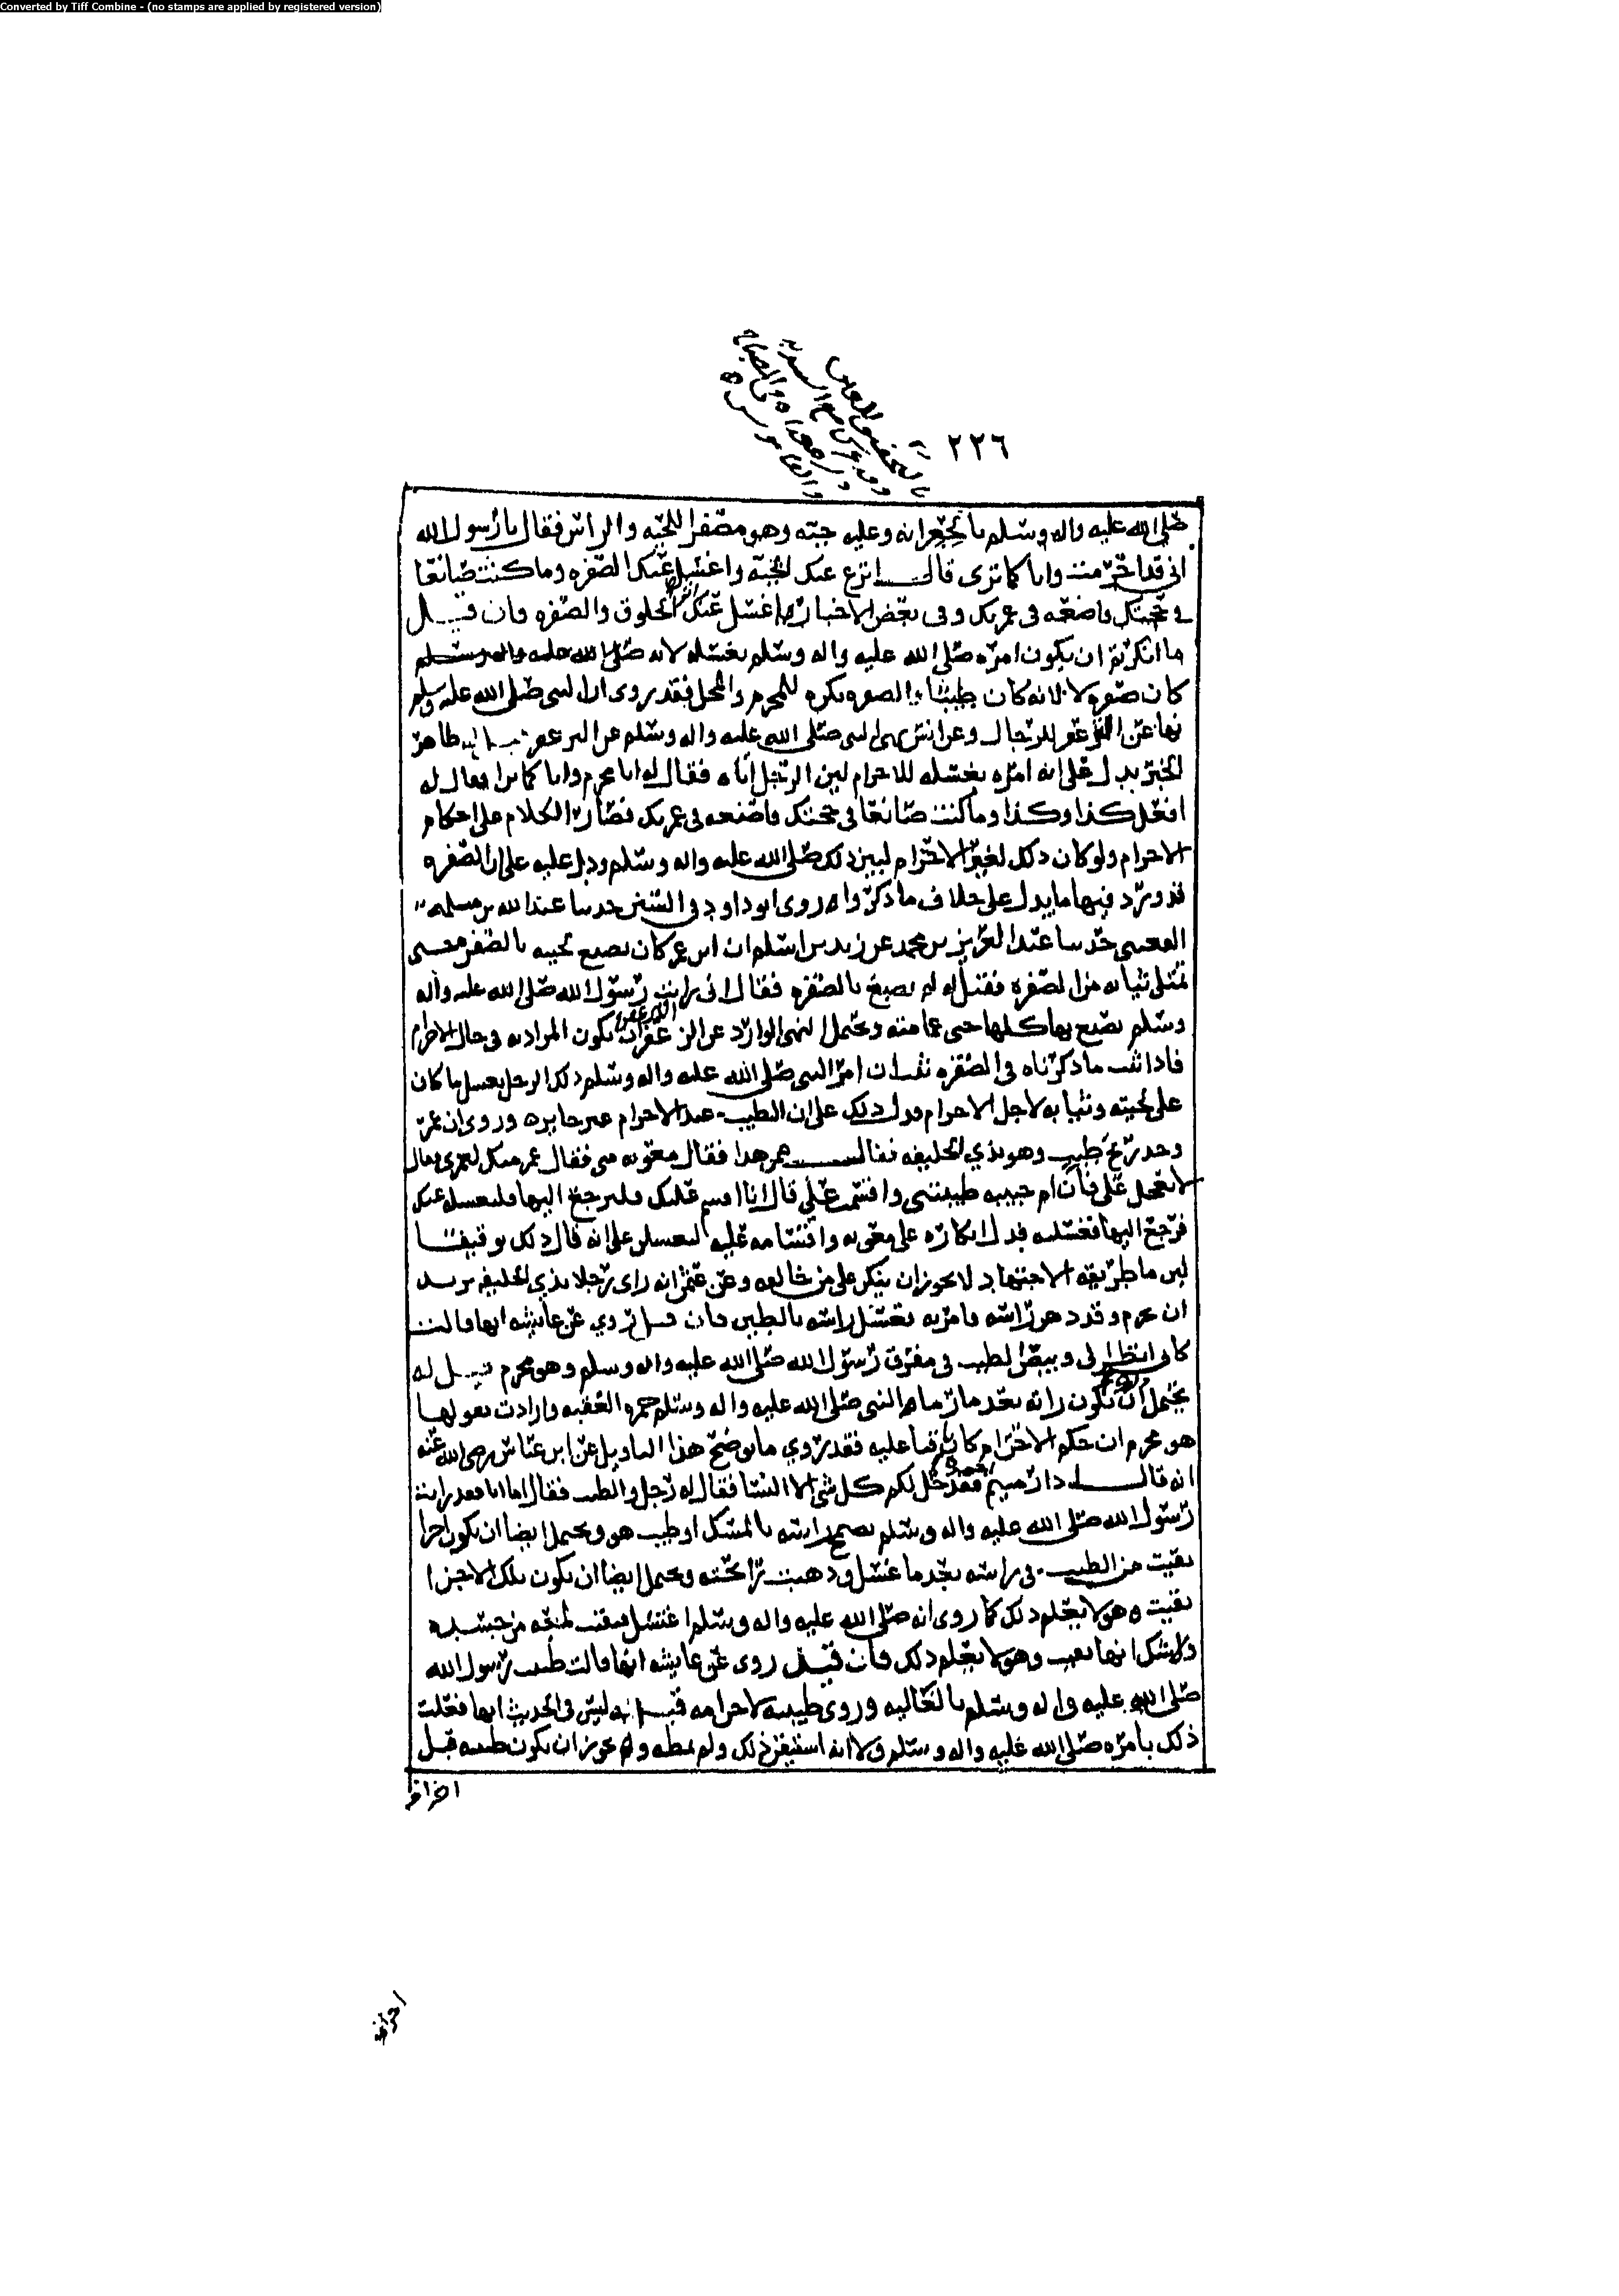 Converted by Tiff Combine - (no stamps are applied by registered version)
٢٢٦
صلى الله عليه واله وسلم بالجعرانه وعليه جبته وهو مصفر اللحيه والراس فقال يا رسول الله
اني قد احرمت وانا كما ترى قال انزع عنك الجبه واغسل عنك الصفره وما كنت صانعا
في حجتك فاصنعه في عمرتك وفي بعض الاخبار اغسل عنك اثر الخلوق والصفره فان قيل
ما انكرتم ان يكون امره صلى الله عليه واله وسلم بغسله لانه صلى الله عليه واله وسلم
كان صفره لا لانه كان طيبا الصفره تكره للمحرم والمحل فقد روى ان النبي صلى الله عليه وسلم
نها عن التزعفر للرجال وعن انس نهى النبي صلى الله عليه واله وسلم عن التزعفر ظاهر
الخبر يدل على انه امره بغسله للاحرام لين الرجل اتاه فقال له انا محرم وانا كما ترا فقال له
افعل كذا وكذا وما كنت صانعا في حجتك فاصنعه في عمرتك فصار الكلام على احكام
الاحرام ولو كان ذلك لغير الاحرام لبين ذلك صلى الله عليه واله وسلم ودل عليه على ان الصفره
قد ورد فيها ما يدل على خلاف ما ذكر روى ابو داود في السنن حدثنا عبد الله بن مسلمه
القعنبي حدثنا عبد العزيز بن محمد عن زيد بن اسلم ان ابن عمر كان يصبغ لحيته بالصفر حتى
تمتلي ثيابه من الصفره فقيل له لم تصبغ بالصفره فقال اني رايت رسول الله صلى الله عليه واله
وسلم يصبغ بها كلها حتى عمامته ويحتمل النهي الوارد عن الزعفران يكون المراد به في حال الاحرام
فاذا ثبت ما ذكرناه في الصفره ثبت ان امر النبي صلى الله عليه واله وسلم ذلك الرجل بغسل ما كان
على لحيته وثيابه لاجل الاحرام فدل ذلك على ان الطيب عند الاحرام غير جايزه وروى ان عمر
وجد ريح طيب وهو بذي الحليفه فقال ممن هذا فقال معويه مني فقال عمر منك لعمري فقال
لا تعجل علي فان ام حبيبه طيبتني واقسمت علي قال انا اقسم عليك فلترجع اليها فلتغسله عنك
فرجع اليها فغسلته فدل انكاره على معويه واقسامه عليه لتغسلن على انه قال ذلك توقيفا
لين ما طريقه الاجتهاد لا يجوز ان ينكر على من خالفه وعن عثمن انه راى رجلا بذي الحليفه يريد
ان يحرم وقد دهن راسه فامر به بغسل راسه بالطين فان قيل روي عن عايشه انها قالت
كاني انظر الى وبيص الطيب في مفرق رسول الله صلى الله عليه واله وسلم وهو محرم قيل له
يحتمل ان تكون راته بعد ما رما النبي صلى الله عليه واله وسلم جمره العقبه وارادت بقولها
هو محرم ان حكم الاحرام كان باقيا عليه فقد روي ما يوضح هذا التاويل عن ابن عباس رضي الله عنه
انه قال اذا رميتم الجمره فقد حل لكم كل شي الا النسا فقال له رجل والطيب فقال اما انا فقد رايت
رسول الله صلى الله عليه واله وسلم يضمخ راسه بالمسك او طيب هو ويحتمل ايضا ان يكون اجزا
بقيت من الطيب في راسه بعد ما غسل وذهبت رائحته ويحتمل ايضا ان يكون تلك الاجزا
بقيت وهو لا يعلم ذلك كما روى انه صلى الله عليه واله وسلم اغتسل فبقيت لمعه من جسده
ولا شك انها بقيت وهو لا يعلم ذلك فان قيل روى عن عايشه انها قالت طيبت رسول الله
صلى الله عليه واله وسلم بالغاليه وروى طيبته لاحرامه قيل انه ليس في الحديث انها فعلت
ذلك بامره صلى الله عليه واله وسلم ولا انه استقر ذلك ولم يمطه ولم يجوز ان يكون طيبه قبل
احرامه
احرامه